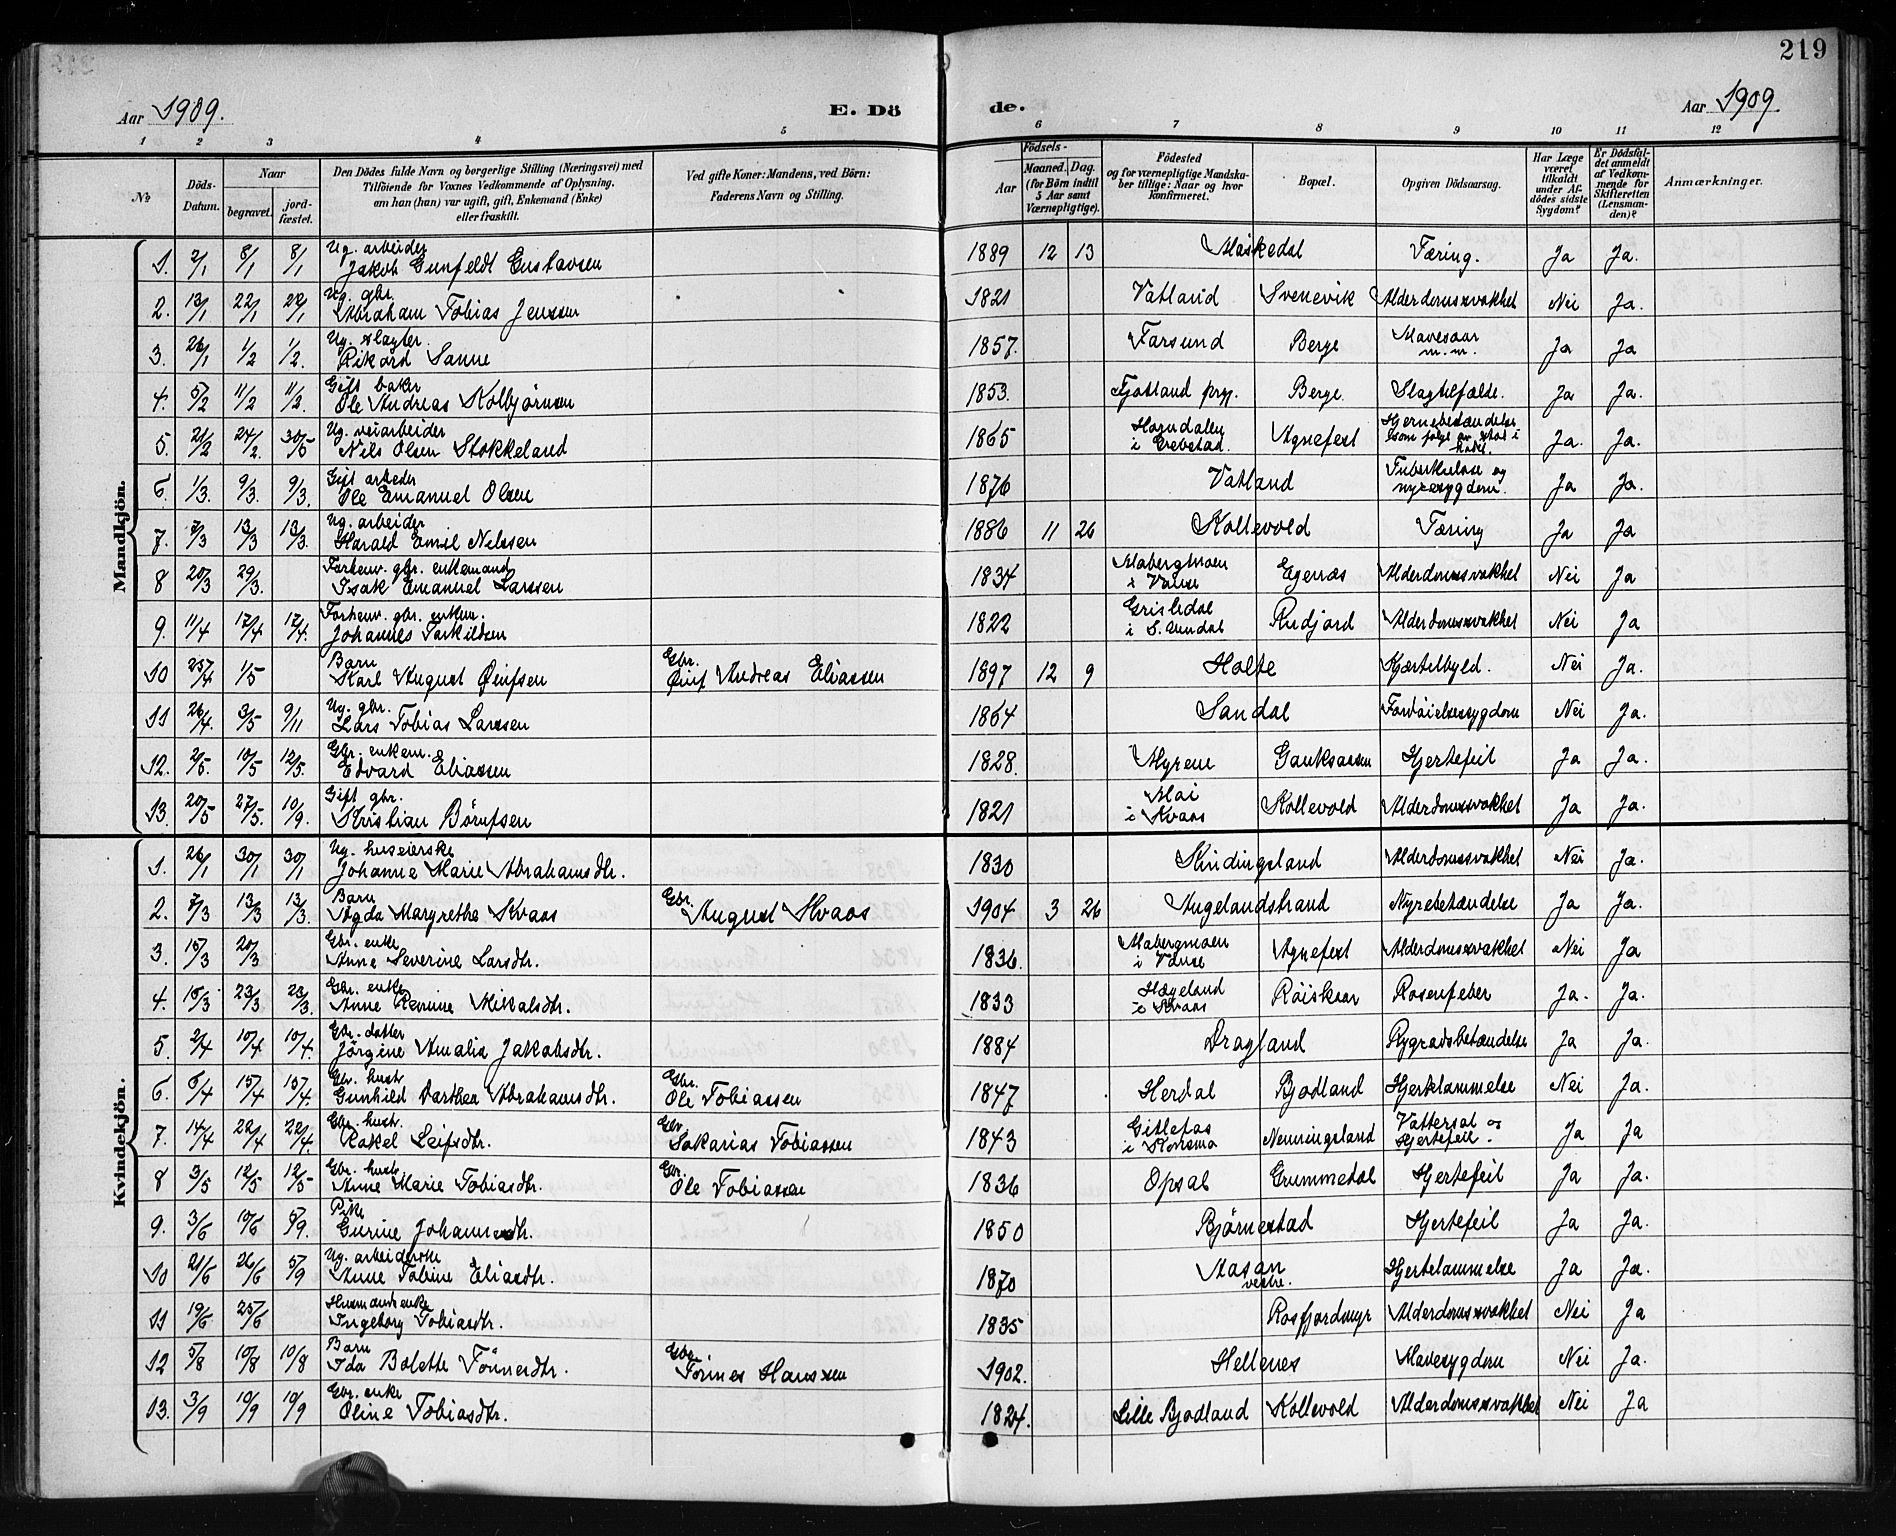 219
Aar 1909. E. Dö de. Aar 1909.
1 2 3 4 5 6 7 8 9 10 11 12
№ Döds-Datum. Naar begravet. jordfæstet. Den Dödes fulde Navn og borgerlige Stilling (Næringsvei) med Tilföiende for Voxnes Vedkommende af Oplysning, om han (hun) var ugift, gift, Enkemand (Enke) eller fraskilt. Ved gifte Koner: Mandens, ved Börn: Faderens Navn og Stilling. Födsels- Aar Maaned. Dag. (for Börn indtil 5 Aar samt Værnepligtige). Födested og for værnepligtige Mandskaber tillige: Naar og hvor konfirmeret. Bopæl. Opgiven Dödsaarsag. Har Læge været tilkaldt under Afdödes sidste Sygdom? Er Dödsfaldet anmeldt af Vedkommende for Skifteretten (Lensmanden)? Anmærkninger.
Mandkjön.
1. 2/1 8/1 8/1 Ug. arbeider Jakob Gunfeldt Gustavsen 1889 12 13 Møskedal Tæring. Ja Ja.
2. 13/1 22/1 22/1 Ug. gbr. Abraham Tobias Jenssen 1821 Vatland Svenevik Alderdomssvakhet Nei Ja.
3. 26/1 1/2 1/2. Ug. slagter Rikard Sanne 1857. Farsund Berge Mavesaar m.m. Ja Ja
4. 5/2 11/2 11/2. Gift baker Ole Andreas Kolbjørnsen 1853. Fjotland prgj. Berge Slagtilfælde. Ja Ja.
5. 21/2 24/2. 30/5 Ug. veiarbeider Nils Olsen Stokkeland 1865 i Grebstad. Agnefest Hjernebetændelse som følge av stød i hodet. Ja. Ja.
6. 1/3. 9/3. 9/3. Gift arbeder Ole Emanuel Olsen 1876 Vatland Tuberkulose og nyresygdom. Ja Ja.
7. 7/3 13/3 13/3. Ug. arbeider Harald Emil Nelssen 1886 11 26 Kollevold Tæring Ja Ja
8 20/3 29/3. Forhenv. gbr. enkemand Isak Emanuel Larssen 1834 Mabergmoen i Vanse Egenæs Alderdomssvakhet Nei Ja
9. 11/4 17/4 17/4. Forhenv. gbr. enkem. Johannes Torkildsen 1822 Grisledal i S. Undal Rudjord Alderdomssvakhet Nei Ja
10 25/4 1/5 Barn Karl August Øinfsen Gbr. Øinf Andreas Eliassen 1897 12 9 Holte Kjærtelbyld. Nei Ja.
11 26/4. 3/5 9/11 Ug. gbr. Lars Tobias Larssen 1864 Sandal Fordøielsessygdom Nei Ja.
12. 2/5. 10/5 12/5. Gbr. enkem. Edvard Eliassen 1828. Myrene Gauksaasen Hjertefeil Ja Ja.
13. 20/5 27/5. 10/9. Gift gbr. Kristian Børufsen 1821 Moi i Kvaas Kollevold Alderdomssvakhet Ja Ja.
Kvindekjön.
1. 26/1 30/1 30/1 Ug. huseierske Johanne Marie Abrahamsdtr. 1830 Skindingsland Alderdomssvakhet Nei Ja.
2. 7/3 13/3 13/3. Barn Agda Margrethe Kvaas Gbr. August Kvaas 1904 3 26 Augelandstrand Nyrebetændelse Ja Ja.
3. 15/3 20/3 Gbr. enke Anne Severine Larsdtr. 1836. Mabergmoen i Vanse Agnefest Alderdomssvakhet Nei Ja
4. 15/3 23/3 23/3. Gbr. enke Anne Mikalsdtr. 1833 Hægeland i Kvaas Røiskaar Rosenfeber Ja. Ja.
5. 2/4 10/4. 10/4. Gbr. datter Jörgine Amalia Jakobsdtr. 1884 Dragland Rygradsbetændelse Ja Ja.
6. 6/4 15/4 15/4. Gbr. hustr Gunhild Dorthea Abrahamsdtr. Gbr. Ole Tobiassen 1847 Herdal Bjodland Hjertelammelse Nei Ja.
7. 14/4 22/4 22/4. Gbr. hustr. Rakel Leifsdtr. Gbr Sakarias Tobiassen 1843 Gitlefos i Konsmo Nenningsland Vattersot og Hjertefeil. Ja Ja
8 3/5 12/5 12/5 Gbr. hustr. Anne Marie Tobiasdtr. Gbr. Ole Tobiassen 1836 Opsal Grummedal Hjertefeil Ja Ja.
9. 3/6 10/6 5/9. Pike Gurine Johannesdtr. 1850 Bjørnestad Hjertefeil Ja Ja.
10 21/6 26/6 5/9 Ug. arbeiderske Anne Tobine Eliasdtr. 1870 Aasan vestre. Hjertelammelse Ja Ja.
11 19/6 25/6 Husmandsenke Ingeborg Tobiasdtr. 1835 Rosfjordmyr Alderdomssvakhet Nei Ja
12 5/8 10/8 10/8 Barn Ida Bolette Tönnesdtr. Gbr. Tönnes Hanssen 1902. Hellenes Mavesygdom Nei Ja.
13. 3/9 10/9 10/9 Gbr. enke Oline Tobiasdtr. 1824. Lille Bjodland Kollevold Alderdomssvakhet Nei Ja